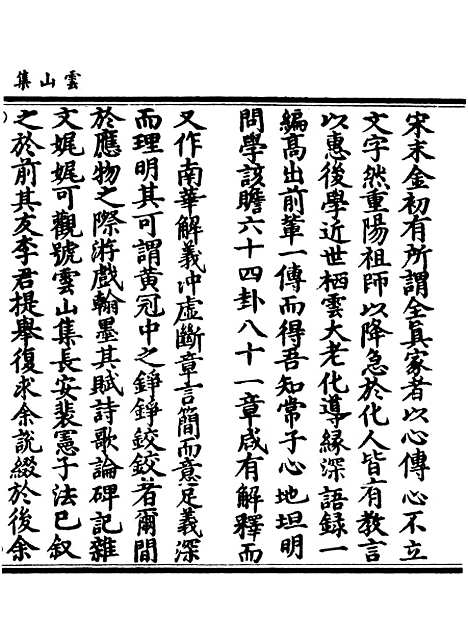 雲山集
宋末金初有所謂全真家者以心傳心不立
文字然重陽祖師以降急於化人皆有教言
以惠後學近世栖雲大老化導緣深語録一
編髙出前輩一傳而得吾知常子心地坦明
問學該贍六十四卦八十一章咸有解釋而
又作南華解義冲虛斷章言簡而意足義深
而理明其可謂黄冠中之錚錚鉸鉸者爾間
於應物之際游戲翰墨其賦詩歌論碑記雜
文娓娓可觀號雲山集長安裴憲子法已叙
之於前其友李君提舉復求余說綴於後余